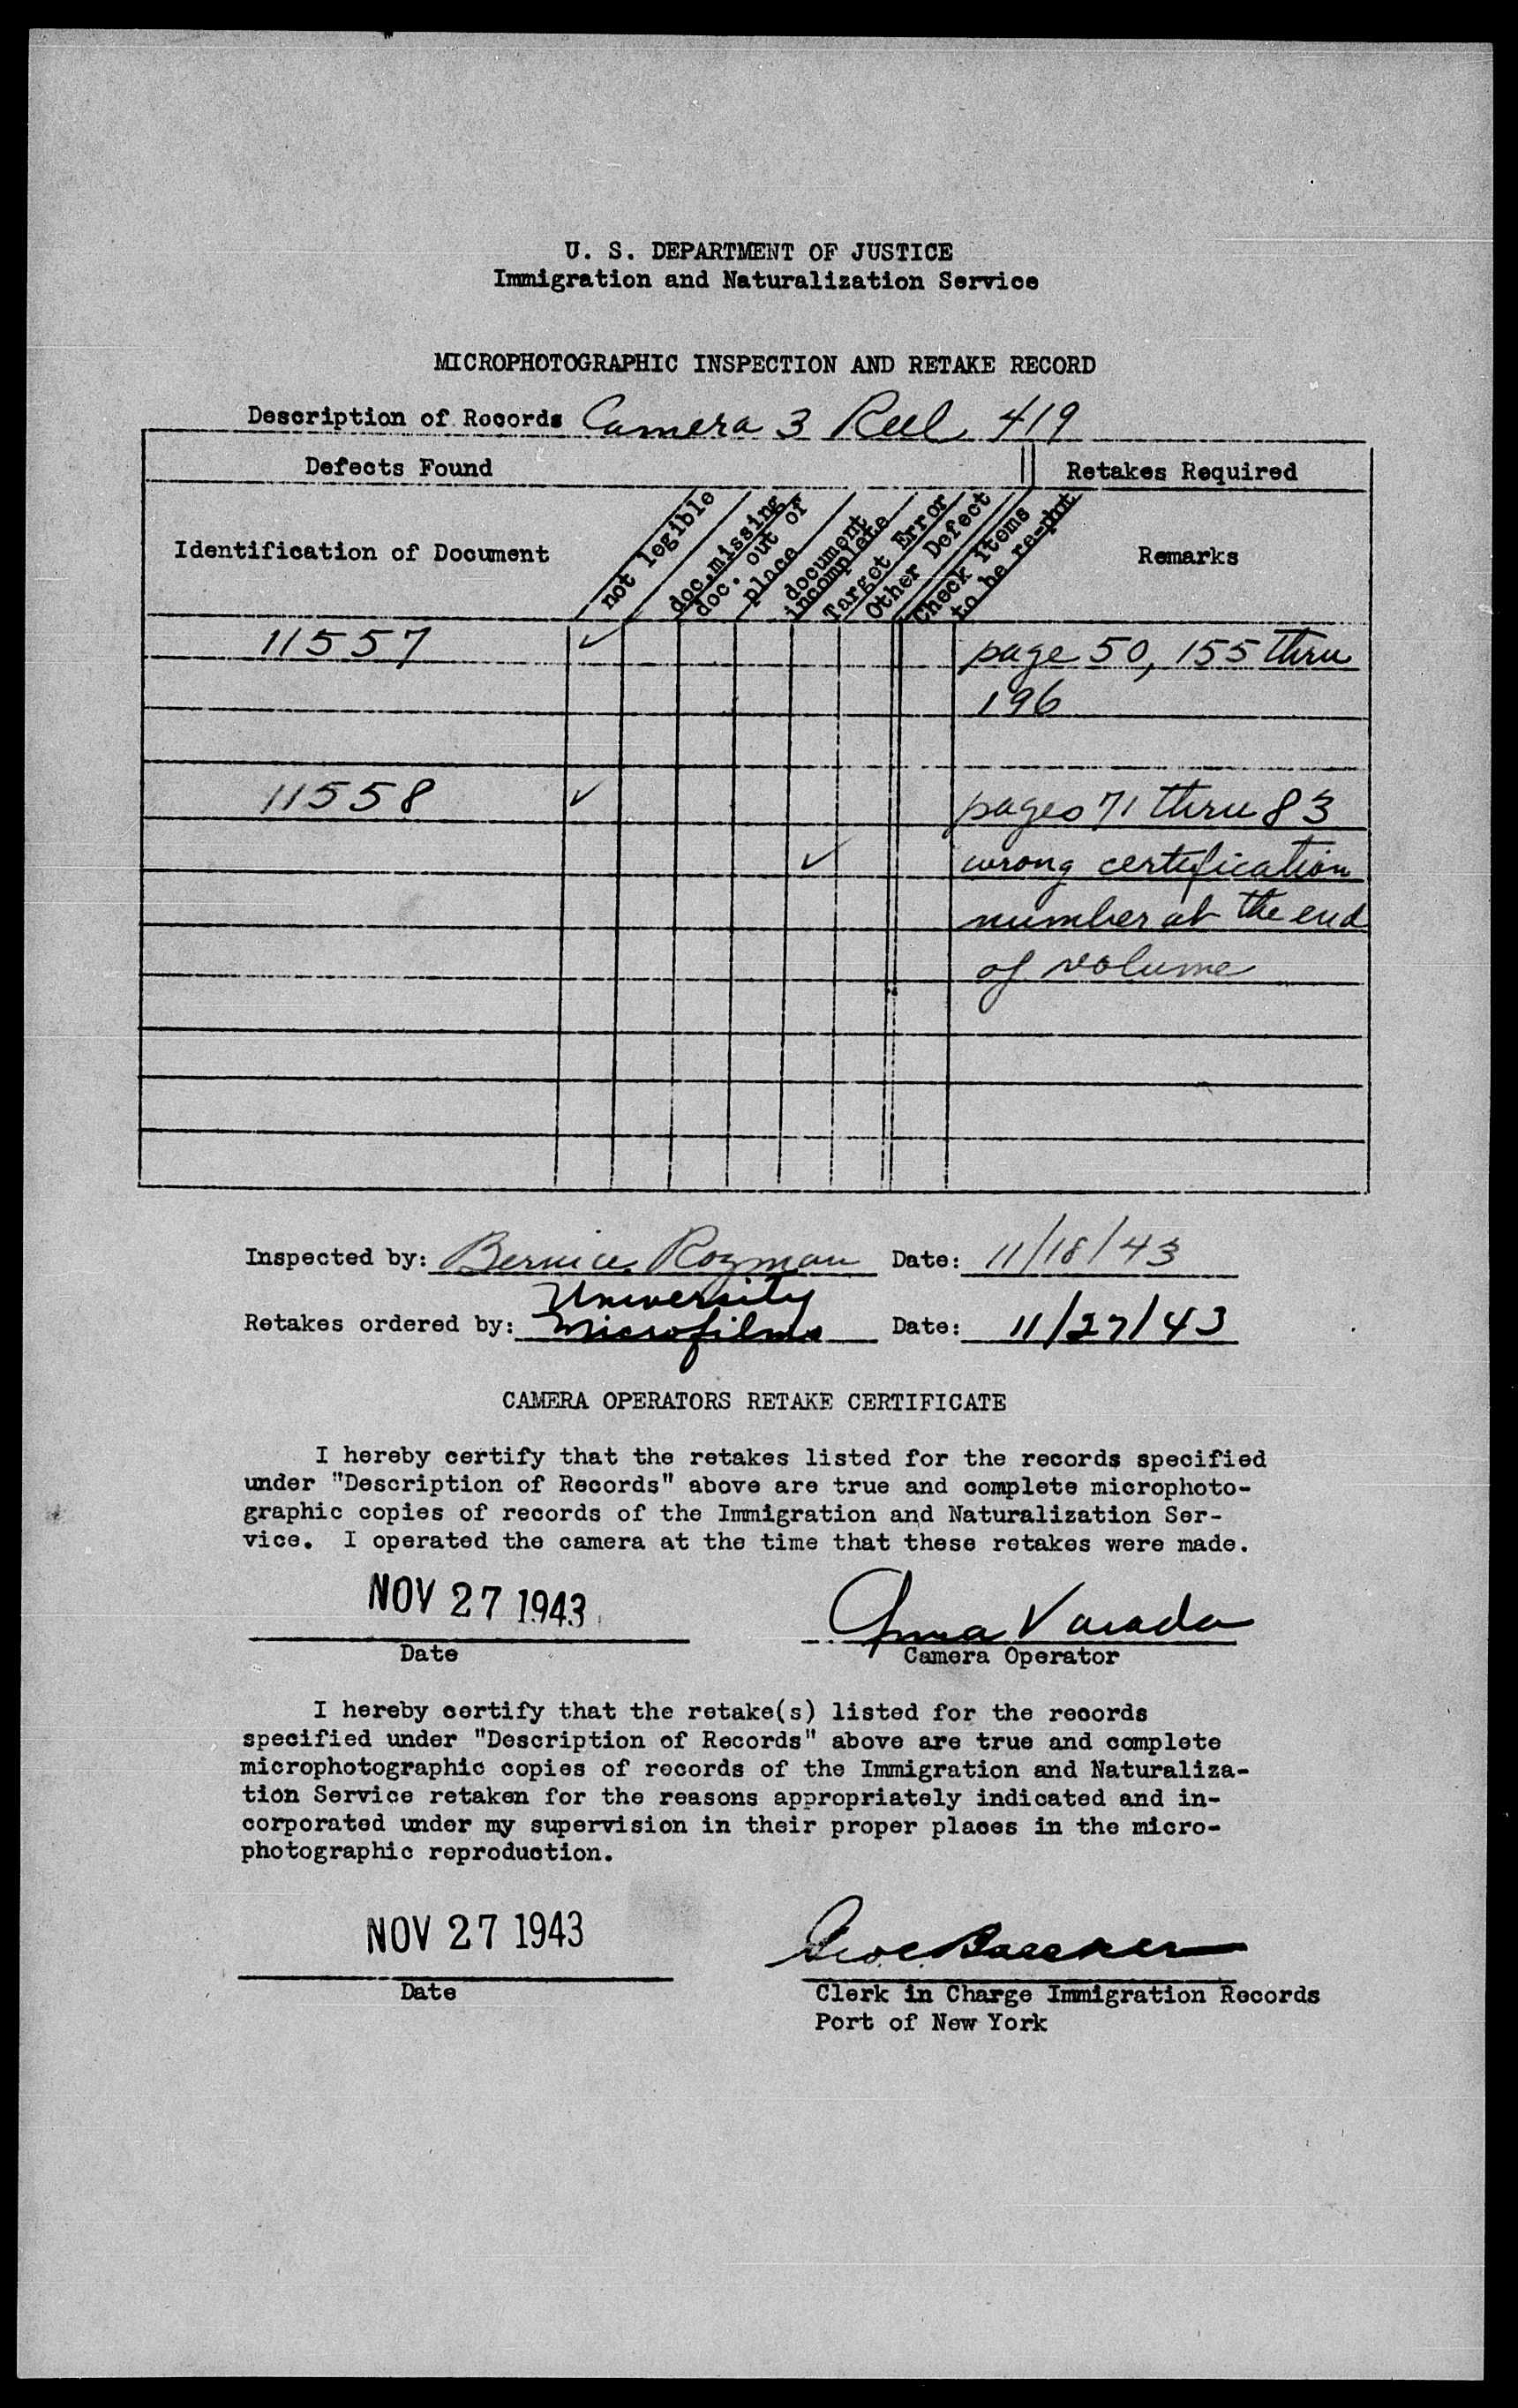 U. S. DEPARTMENT OF JUSTICE
Immigration and Naturalization Service
MICROPHOTOGRAPHIC INSPECTION AND RETAKE RECORD
Description of Records Camera 3 Reel 419
Defects Found
Retakes Required
Identification of Document
not legible
doc. missing
doc. out of
place
document
incomplete
Target Error
Other Defect
Check items
to be re-phot
Remarks
11557 ✓ page 50, 155 thru
196
11558 ✓ pages 71 thru 83
✓ wrong certification
number at the end
of volume
Inspected by: Bernice Rozman Date: 11/18/43
University
Retakes ordered by: Microfilms Date: 11/27/43
CAMERA OPERATORS RETAKE CERTIFICATE
I hereby certify that the retakes listed for the records specified
under "Description of Records" above are true and complete microphoto-
graphic copies of records of the Immigration and Naturalization Ser-
vice. I operated the camera at the time that these retakes were made.
NOV 27 1943
Anna Varada
Date
Camera Operator
I hereby certify that the retake(s) listed for the records
specified under "Description of Records" above are true and complete
microphotographic copies of records of the Immigration and Naturaliza-
tion Service retaken for the reasons appropriately indicated and in-
corporated under my supervision in their proper places in the micro-
photographic reproduction.
NOV 27 1943
Date
Clerk in Charge Immigration Records
Port of New York